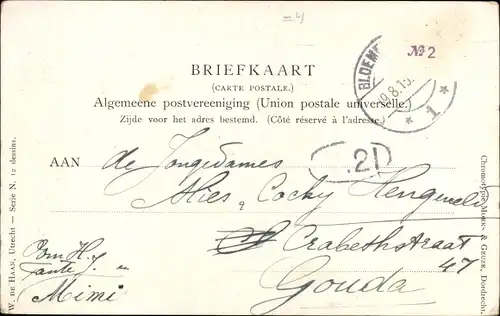 № 2
BLOEME
9.8.19
* 1 *
BRIEFKAART
(CARTE POSTALE.)
Algemeene postvereeniging (Union postale universelle.)
Zijde voor het adres bestemd. (Côté réservé à l'adresse.)
AAN de Jongedames
2
Mies & Cocky Hengevel
Crabethstraat
47
Gouda
Tante J. en
Mimi
W. DE HAAN, Utrecht — Serie N. 12 dessins.
Chromotypie MORKS & GEUZE, Dordrecht.